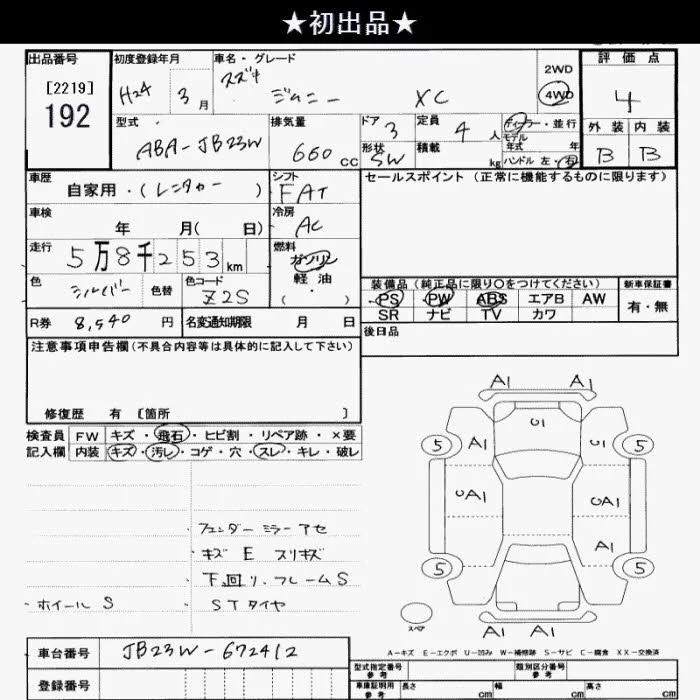 ★初出品★
出品番号 初度登録年月 車名・グレード 2WD 評価点
[2219] H24 3月 スズキ ジムニー XC 4WD 4
192 型式 排気量 ドア 3 定員 4人 ディーラー・並行 外装 内装
ABA-JB23W 660cc 形状 SW 積載 kg モデル年式 年 B B
ハンドル 左・右
車歴 シフト セールスポイント(正常に機能するものに限ります)
自家用・(レンタカー) FAT
車検 冷房
年 月( 日) AC
走行 燃料
5万8千253km ガソリン
色 色替 色コード 軽油 装備品(純正品に限り○をつけてください) 新車保証書
シルバー Z2S (・) PS PW ABS エアB AW 有・無
R券 8,540円 名変通知期限 月 日 SR ナビ TV カワ
注意事項申告欄(不具合内容等は具体的に記入して下さい) 後日品
修復歴 有 〔箇所 〕
検査員 FW キズ・飛石・ヒビ割・リペア跡・×要
記入欄 内装 キズ・汚レ・コゲ・穴・スレ・キレ・破レ
A1 A1
U1
5 A1 U1 5
UA1 UA1
A1
5 5
A1 A1
スペア
・フェンダーミラーアセ
・キズ E スリキズ
・下回リ.フレームS
・ホイールS ・STタイヤ
A-キズ E-エクボ U-凹み W-補修跡 S-サビ C-腐食 XX-交換済
車台番号 JB23W-672412 型式指定番号 参考 類別区分番号 参考
登録番号 車庫証明用 参考 長さ cm 幅 cm 高さ cm